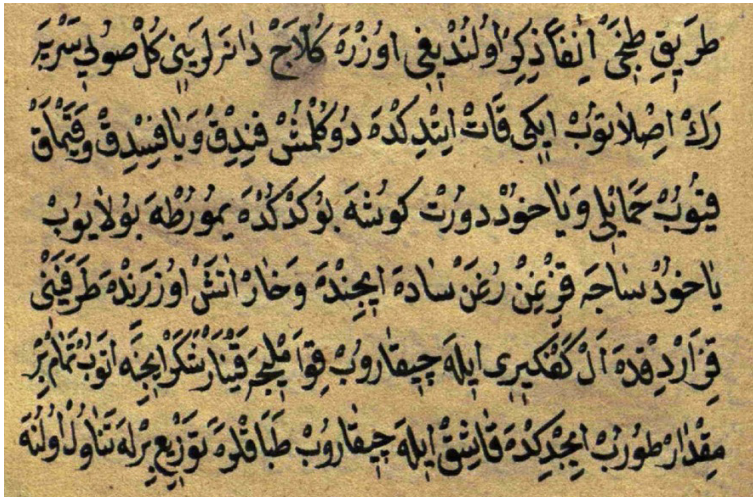 طريقِ طبخى آنفاً ذكر اولنديغى اوزره كُلاَجْ دانه‌لرينى كل صويى سرپه
رك اصلاتوب ايكى قات ايتدكده دوكلمش فندق ويا فسدق وقيماق
قيوب حمايلى وياخود دورت كوشه بوكدكده يمورطه يه بولايوب
ياخود ساجه قزغن رغن ساده ايچنده وخار آتش اوزرنده طرفينى
قزاردقده ال كفكيرى ايله چيقاروب قوامليجه قينار شكر ايچنه آتوب تمام بر
مقدار طوروب ايچدكده قاشق ايله چيقاروب طباقلره توزيع برله تناول اولنه